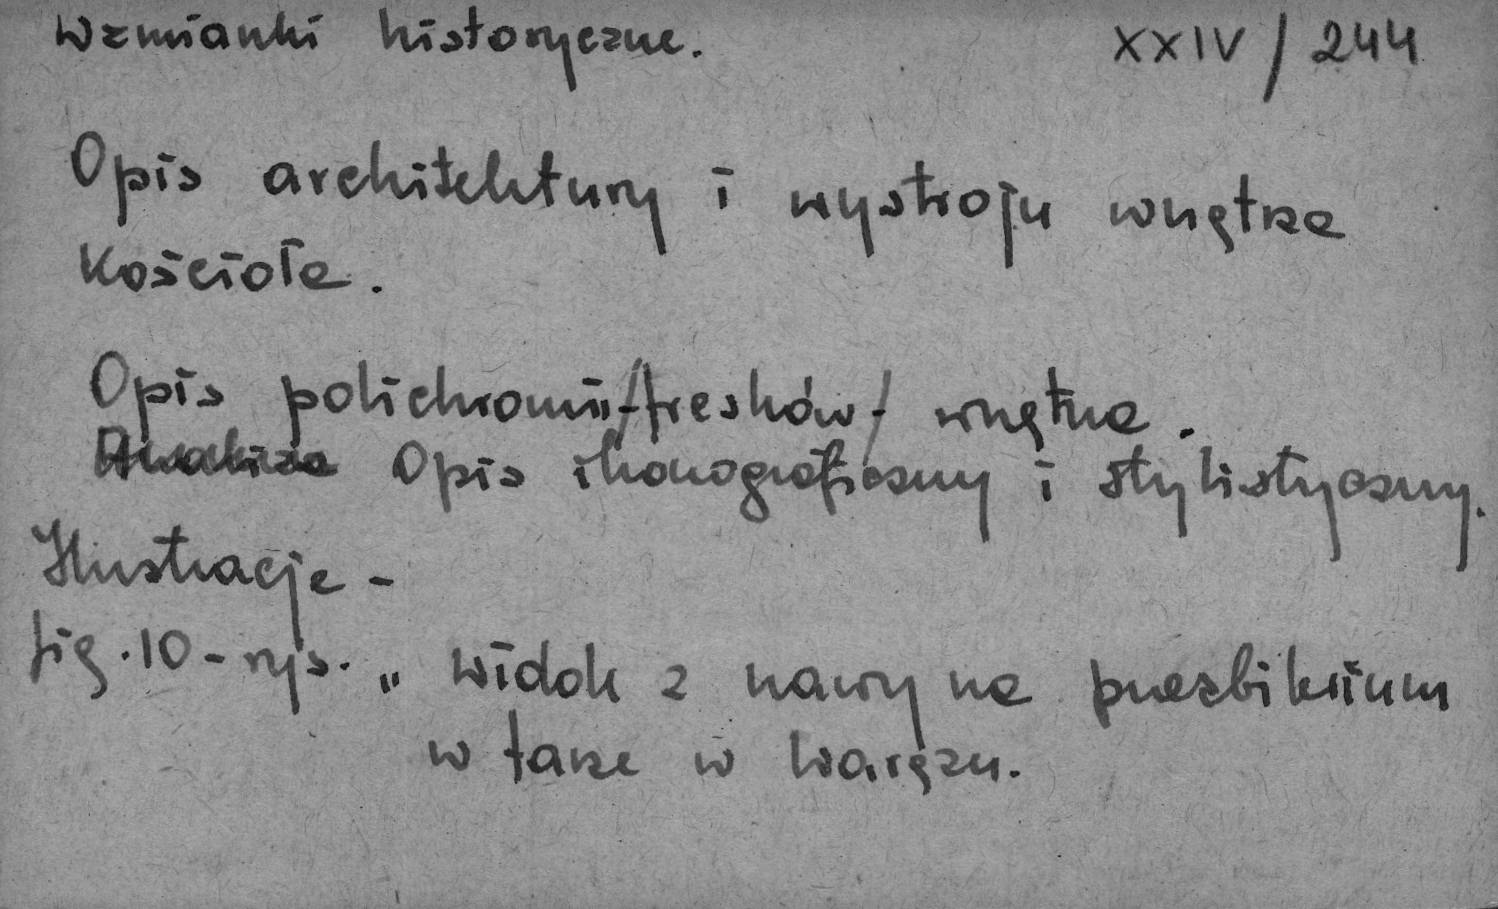 Wzmianki historyczne. XXIV / 244
Opis architektury i wystroju wnętrza
Kościoła.
Opis polichromii /fresków/ wnętrza.
Analiza Opis ikonograficzny i stylistyczny.
Ilustracje -
fig. 10 - rys. „ Widok z nawy na prezbiterium
w farze w Waręzu.